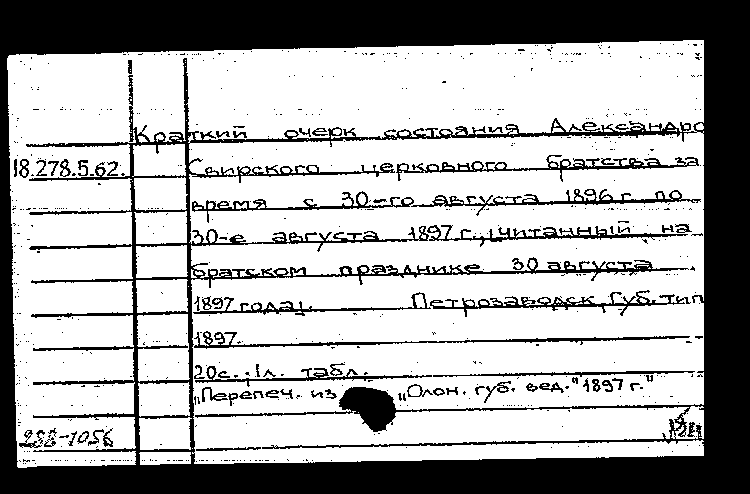 Краткий очерк состояния Александро
18.278.5.62. Свирского церковного братства за
время с 30-го августа 1896 г. по
30-е августа 1897 г., [читанный на
братском празднике 30 августа
1897 года]. Петрозаводск, Губ. тип
1897.
20 с.; 1 л. табл.
„Перепеч. из „Олон. губ. вед." 1897 г."
288-1056